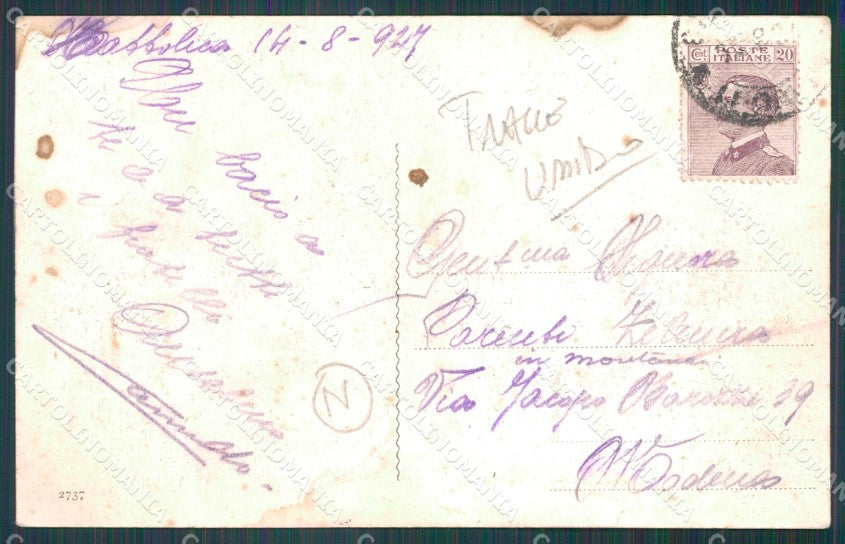 Cattolica 14-8-927
Un bacio a
te e a tutti
i fratelli
POSTE
ITALIANE
Cent. 20
Gent.ma Signora
Parenti Zelmira
in Montanari
Via Jacopo Barozzi 39
Modena
N
2737
CARTOLINOMANIA